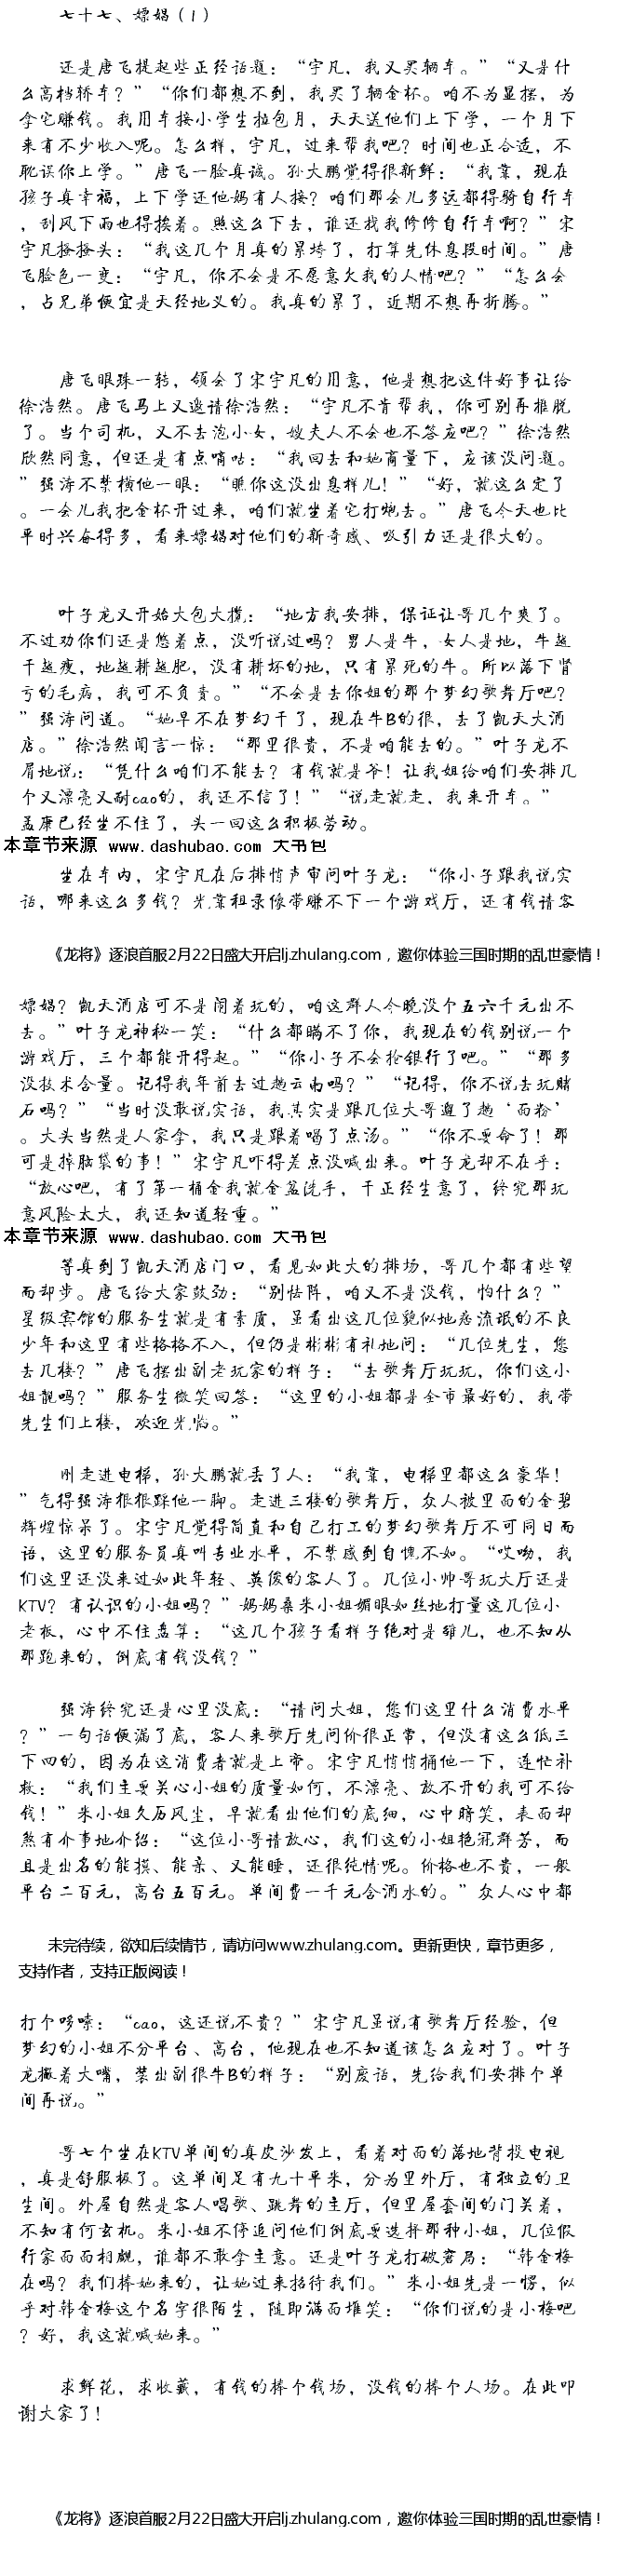 七十七、嫖娼（1）
还是唐飞提起些正经话题：“宇凡，我又买辆车。”“又是什
么高档轿车？”“你们都想不到，我买了辆金杯。咱不为显摆，为
拿它赚钱。我用车接小学生拉包月，天天送他们上下学，一个月下
来有不少收入呢。怎么样，宇凡，过来帮我吧？时间也正合适，不
耽误你上学。”唐飞一脸真诚。孙大鹏觉得很新鲜：“我靠，现在
孩子真幸福，上下学还他妈有人接？咱们那会儿多远都得骑自行车
，刮风下雨也得挨着。照这么下去，谁还找我修修自行车啊？”宋
宇凡搔搔头：“我这几个月真的累垮了，打算先休息段时间。”唐
飞脸色一变：“宇凡，你不会是不愿意欠我的人情吧？”“怎么会
，占兄弟便宜是天经地义的。我真的累了，近期不想再折腾。”
唐飞眼珠一转，领会了宋宇凡的用意，他是想把这件好事让给
徐浩然。唐飞马上又邀请徐浩然：“宇凡不肯帮我，你可别再推脱
了。当个司机，又不去泡小女，嫂夫人不会也不答应吧？”徐浩然
欣然同意，但还是有点嘀咕：“我回去和她商量下，应该没问题。
”强涛不禁横他一眼：“瞧你这没出息样儿！”“好，就这么定了
。一会儿我把金杯开过来，咱们就坐着它打炮去。”唐飞今天也比
平时兴奋得多，看来嫖娼对他们的新奇感、吸引力还是很大的。
叶子龙又开始大包大揽：“地方我安排，保证让哥几个爽了。
不过劝你们还是悠着点，没听说过吗？男人是牛，女人是地，牛越
干越瘦，地越耕越肥，没有耕坏的地，只有累死的牛。所以落下肾
亏的毛病，我可不负责。”“不会是去你姐的那个梦幻歌舞厅吧？
”强涛问道。“她早不在梦幻干了，现在牛B的很，去了凯天大酒
店。”徐浩然闻言一惊：“那里很贵，不是咱能去的。”叶子龙不
屑地说：“凭什么咱们不能去？有钱就是爷！让我姐给咱们安排几
个又漂亮又耐cao的，我还不信了！”“说走就走，我来开车。”
孟康已经坐不住了，头一回这么积极劳动。
本章节来源 www.dashubao.com 大书包
坐在车内，宋宇凡在后排悄声审问叶子龙：“你小子跟我说实
话，哪来这么多钱？光靠租录像带赚不下一个游戏厅，还有钱请客
《龙将》逐浪首服2月22日盛大开启lj.zhulang.com，邀你体验三国时期的乱世豪情！
嫖娼？凯天酒店可不是闹着玩的，咱这群人今晚没个五六千元出不
去。”叶子龙神秘一笑：“什么都瞒不了你，我现在的钱别说一个
游戏厅，三个都能开得起。”“你小子不会抢银行了吧。”“那多
没技术含量。记得我年前去过趟云南吗？”“记得，你不说去玩赌
石吗？”“当时没敢说实话，我其实是跟几位大哥遛了趟‘面粉’
。大头当然是人家拿，我只是跟着喝了点汤。”“你不要命了！那
可是掉脑袋的事！”宋宇凡吓得差点没喊出来。叶子龙却不在乎：
“放心吧，有了第一桶金我就金盆洗手，干正经生意了，终究那玩
意风险太大，我还知道轻重。”
本章节来源 www.dashubao.com 大书包
等真到了凯天酒店门口，看见如此大的排场，哥几个都有些望
而却步。唐飞给大家鼓劲：“别怯阵，咱又不是没钱，怕什么？”
星级宾馆的服务生就是有素质，虽看出这几位貌似地痞流氓的不良
少年和这里有些格格不入，但仍是彬彬有礼地问：“几位先生，您
去几楼？”唐飞摆出副老玩家的样子：“去歌舞厅玩玩，你们这小
姐靓吗？”服务生微笑回答：“这里的小姐都是全市最好的，我带
先生们上楼，欢迎光临。”
刚走进电梯，孙大鹏就丢了人：“我靠，电梯里都这么豪华！
”气得强涛狠狠踩他一脚。走进三楼的歌舞厅，众人被里面的金碧
辉煌惊呆了。宋宇凡觉得简直和自己打工的梦幻歌舞厅不可同日而
语，这里的服务员真叫专业水平，不禁感到自愧不如。“哎呦，我
们这里还没来过如此年轻、英俊的客人了。几位小帅哥玩大厅还是
KTV？有认识的小姐吗？”妈妈桑朱小姐媚眼如丝地打量这几位小
老板，心中不住盘算：“这几个孩子看样子绝对是雏儿，也不知从
那跑来的，倒底有钱没钱？”
强涛终究还是心里没底：“请问大姐，您们这里什么消费水平
？”一句话便漏了底，客人来歌厅先问价很正常，但没有这么低三
下四的，因为在这消费者就是上帝。宋宇凡悄悄捅他一下，连忙补
救：“我们主要关心小姐的质量如何，不漂亮、放不开的我可不给
钱！”朱小姐久历风尘，早就看出他们的底细，心中暗笑，表面却
煞有介事地介绍：“这位小哥请放心，我们这的小姐艳冠群芳，而
且是出名的能摸、能亲、又能睡，还很纯情呢。价格也不贵，一般
平台二百元，高台五百元。单间费一千元含酒水的。”众人心中都
未完待续，欲知后续情节，请访问www.zhulang.com。更新更快，章节更多，
支持作者，支持正版阅读！
打个哆嗦：“cao，这还说不贵？”宋宇凡虽说有歌舞厅经验，但
梦幻的小姐不分平台、高台，他现在也不知道该怎么应对了。叶子
龙撇着大嘴，装出副很牛B的样子：“别废话，先给我们安排个单
间再说。”
哥七个坐在KTV单间的真皮沙发上，看着对面的落地背投电视
，真是舒服极了。这单间足有九十平米，分为里外厅，有独立的卫
生间。外屋自然是客人唱歌、跳舞的主厅，但里屋套间的门关着，
不知有何玄机。朱小姐不停追问他们倒底要选择那种小姐，几位假
行家面面相觑，谁都不敢拿主意。还是叶子龙打破窘局：“韩金梅
在吗？我们捧她来的，让她过来招待我们。”朱小姐先是一愣，似
乎对韩金梅这个名字很陌生，随即满面堆笑：“你们说的是小梅吧
？好，我这就喊她来。”
求鲜花，求收藏，有钱的捧个钱场，没钱的捧个人场。在此叩
谢大家了！
《龙将》逐浪首服2月22日盛大开启lj.zhulang.com，邀你体验三国时期的乱世豪情！